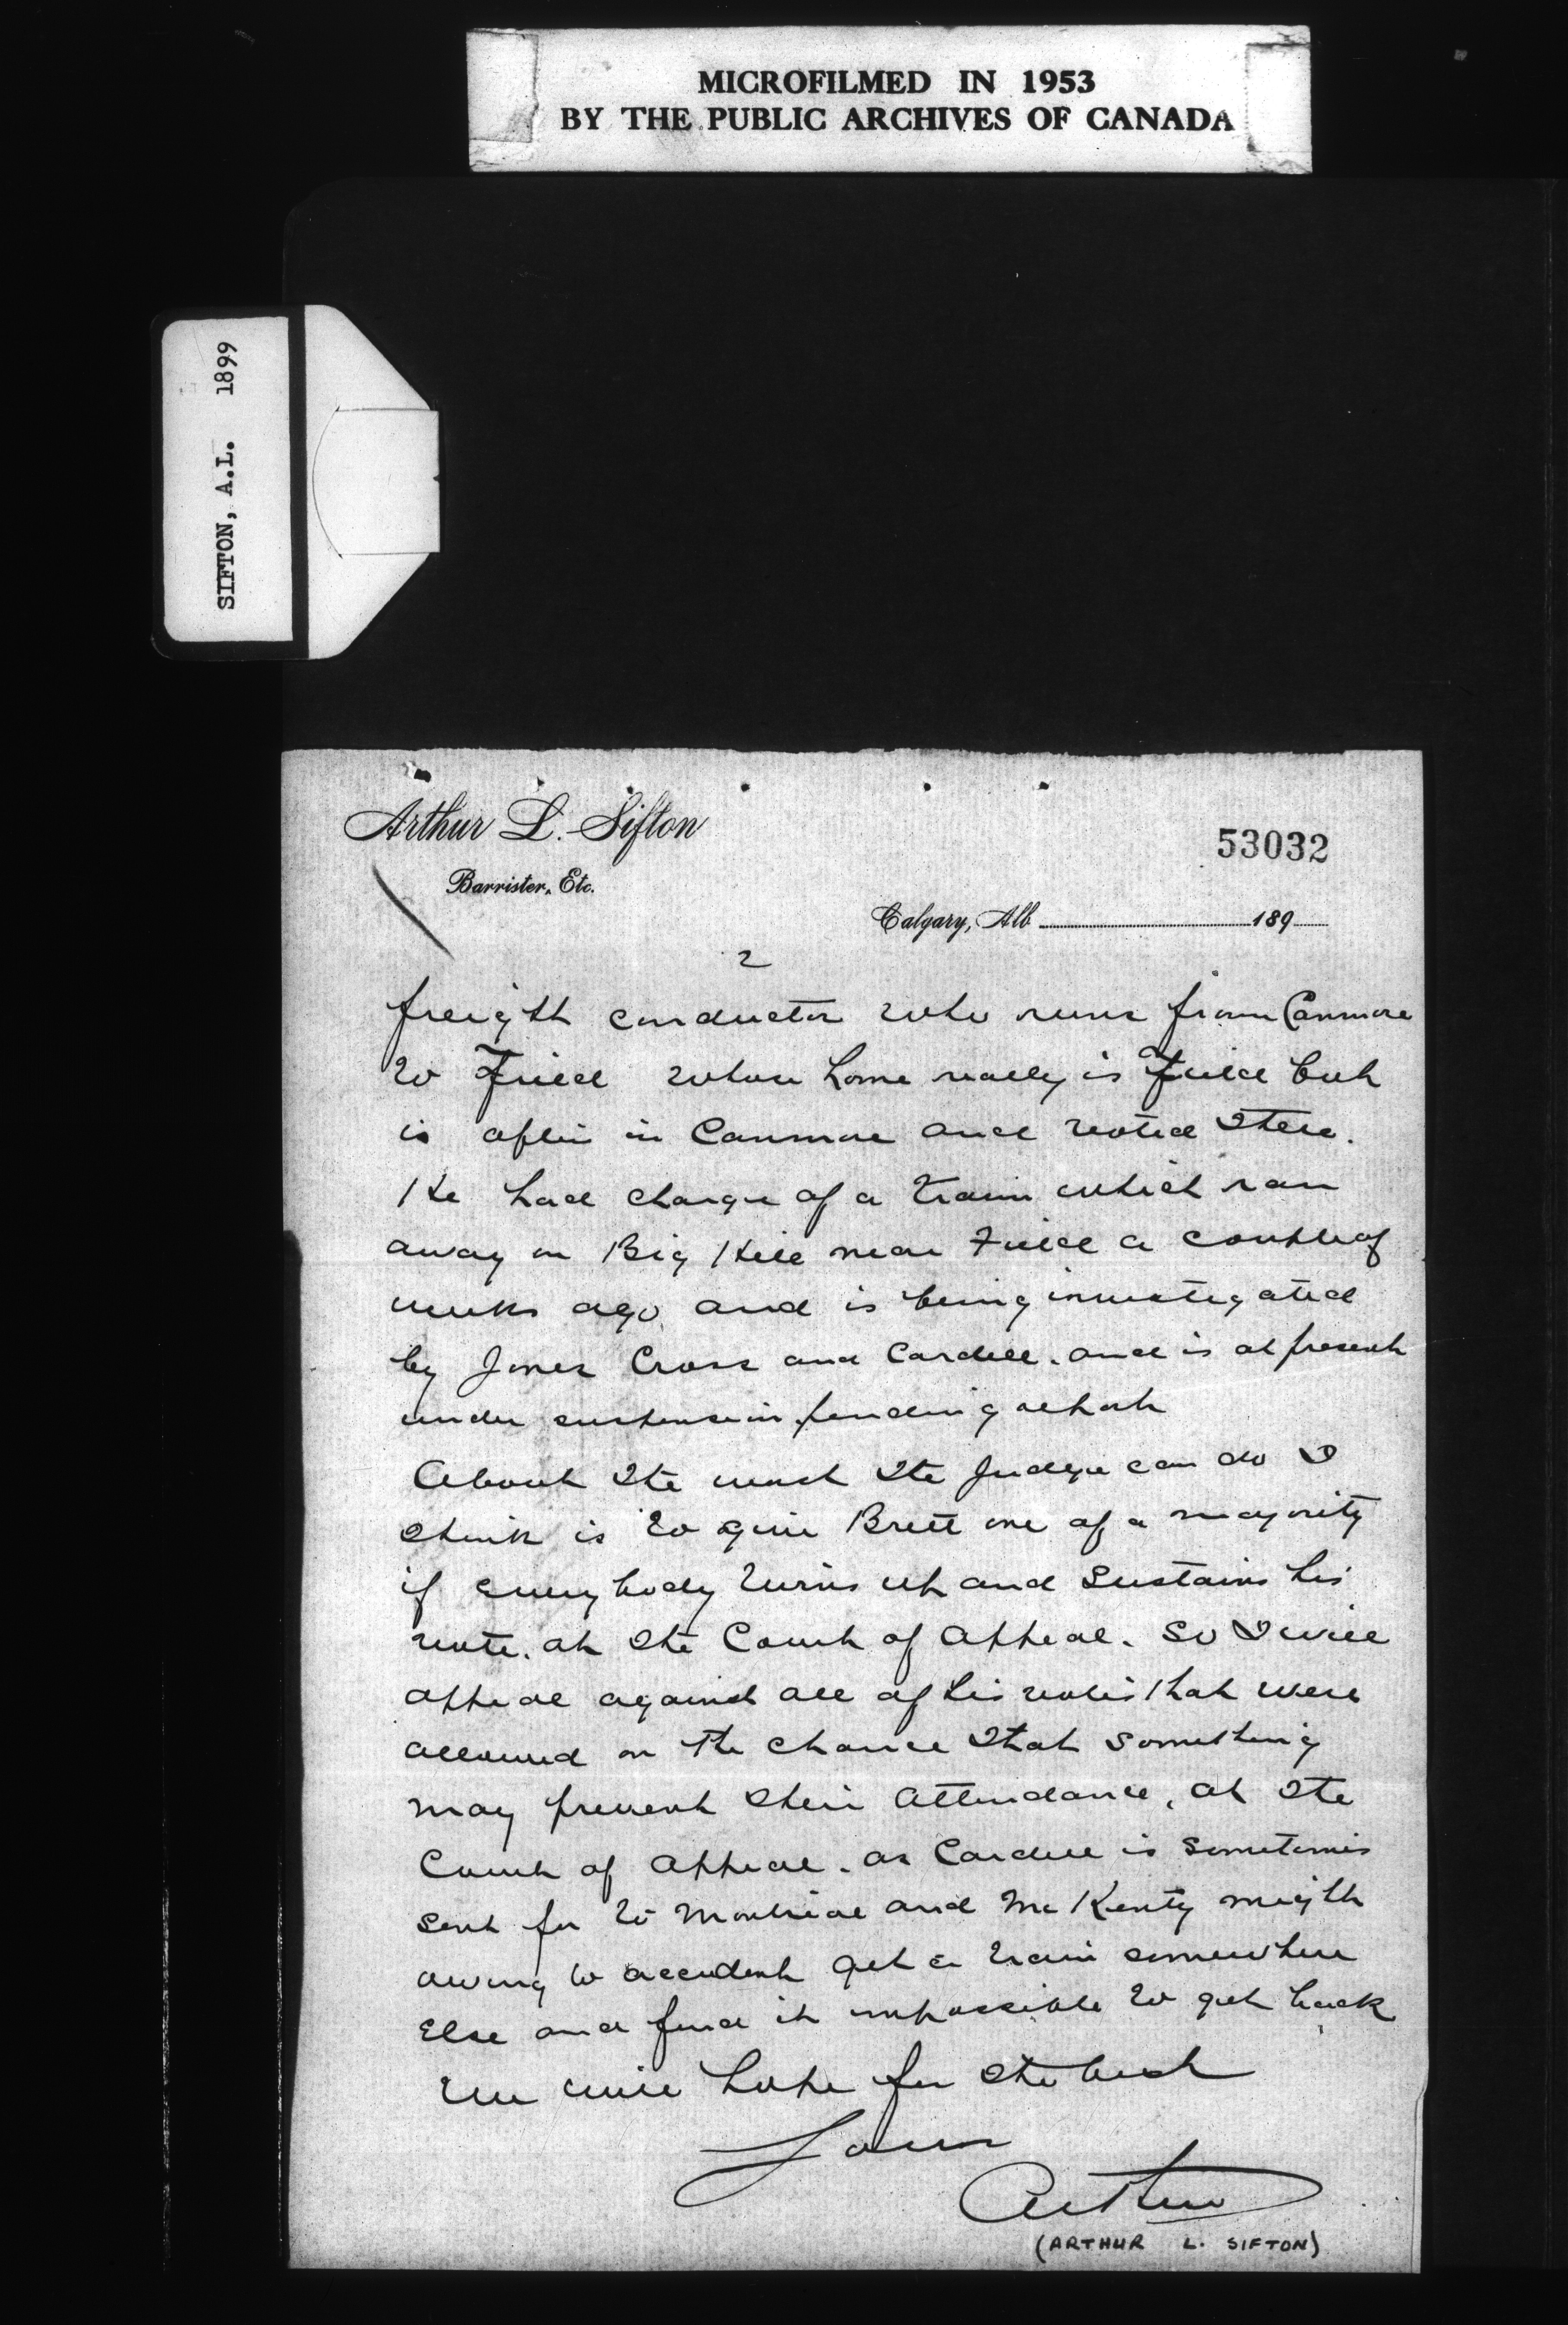 MICROFILMED IN 1953
BY THE PUBLIC ARCHIVES OF CANADA
SIFTON, A.L. 1899
Arthur L. Sifton
Barrister, Etc.
53032
Calgary, Alb 189
2
freight conductor who runs from Canmore
to Field whose home really is Field but
is often in Canmore and voted there.
He had charge of a train which ran
away on Big Hill near Field a couple of
weeks ago and is being investigated
by Jones Cross and Cardell. and is at present
under suspension pending report
About the worst the Judge can do I
think is to give Brett one of a majority
if everybody turns up and sustains his
vote. at the Court of Appeal. So I will
appeal against all of his votes that were
allowed on the chance that something
may prevent their attendance, at the
Court of Appeal. as Cardell is sometimes
sent for to Montreal and McKenty might
owing to accident get a train somewhere
else and find it impossible to get back
We will hope for the best
Yours
Arthur
(ARTHUR L. SIFTON)